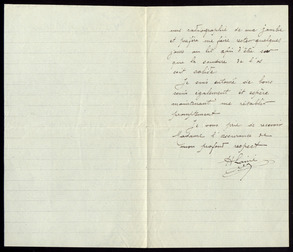 une radiographie de ma jambe
et préfère me faire rester quelques
jours au lit afin d'être sûr
que la soudure de l'os
soit solide.
Je suis entouré de bons
soins également et espère
maintenant me rétablir
promptement.
Je vous prie de recevoir
Madame l'assurance de
mon profond respect